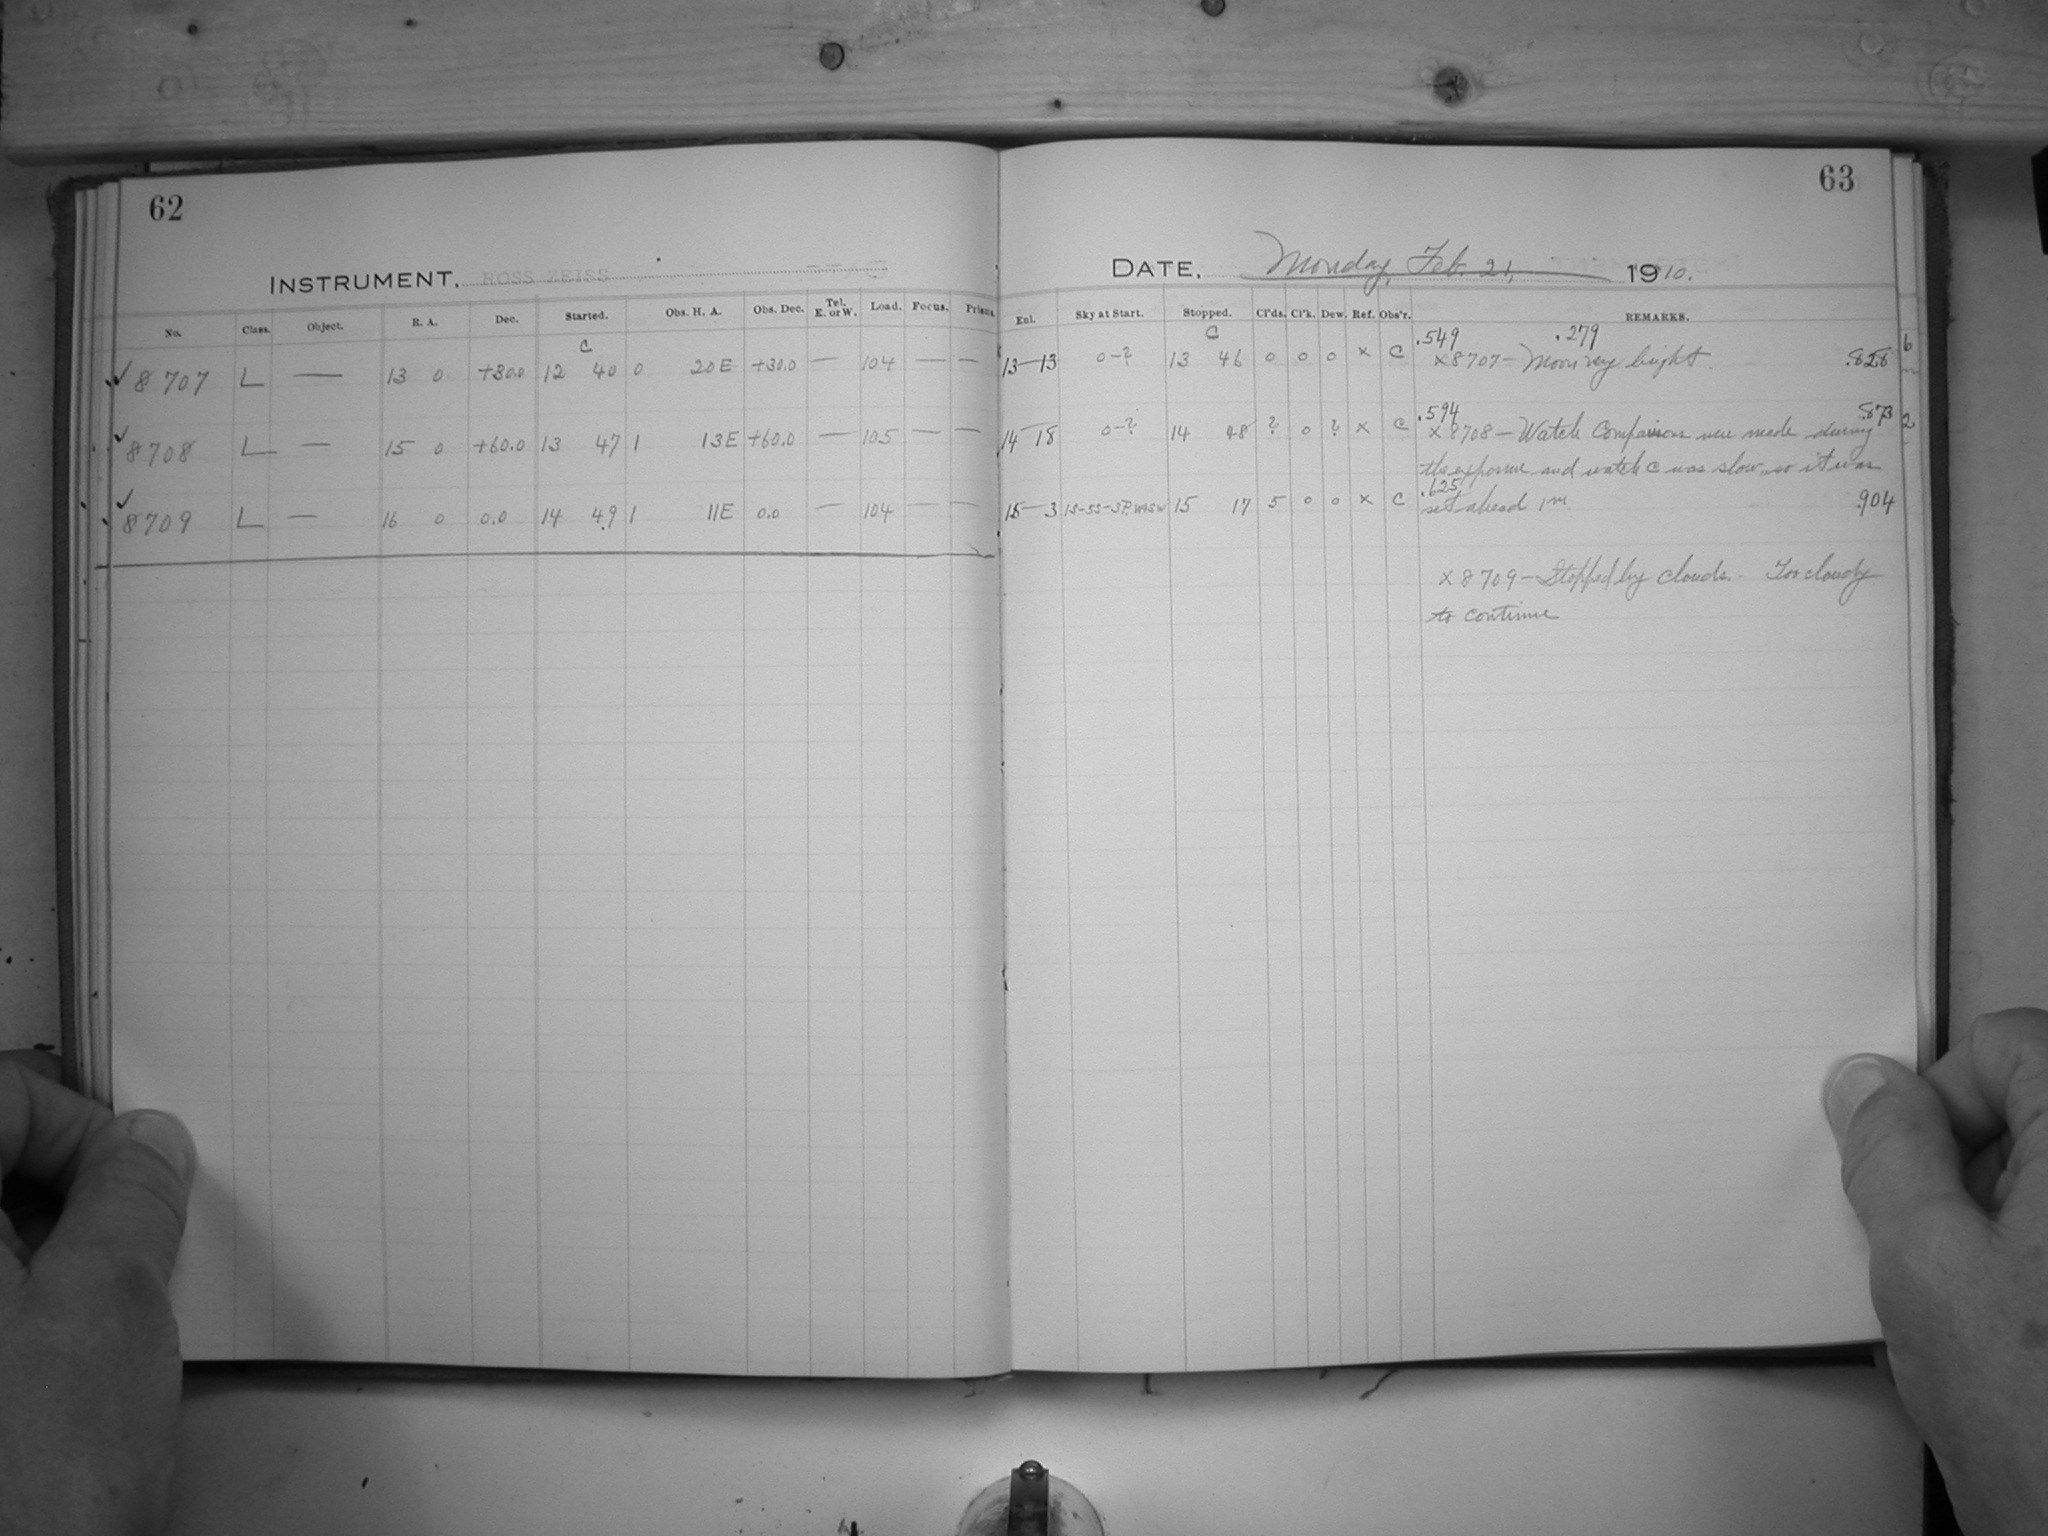 62
INSTRUMENT. ROSS ZEISS
No. Class. Object. R. A. Dec. Started. Obs. H. A. Obs. Dec. Tel. E. or W. Load. Focus. Prisms.
C
✓ 8707 L — 13 0 +30.0 12 40 0 20E +30.0 — 104 — —
✓ 8708 L — 15 0 +60.0 13 47 1 13E +60.0 — 105 — —
✓ 8709 L — 16 0 0.0 14 49 1 11E 0.0 — 104 — —
63
DATE. Monday, Feb. 21, 1910.
Enl. Sky at Start. Stopped. Cl'ds. Cl'k. Dew. Ref. Obs'r. REMARKS.
C .549 .279
13—13 0-? 13 46 0 0 0 x C x8707— Moon very bright. .828
.594 .873
14—18 0-? 14 48 ? 0 ? x C x8708— Watch Comparisons were made during
the exposure and watch C was slow, so it was
.625
15—3 15 17 5 0 0 x C set ahead 1m. .904
x8709— Stopped by clouds. Too cloudy
to continue
6
2